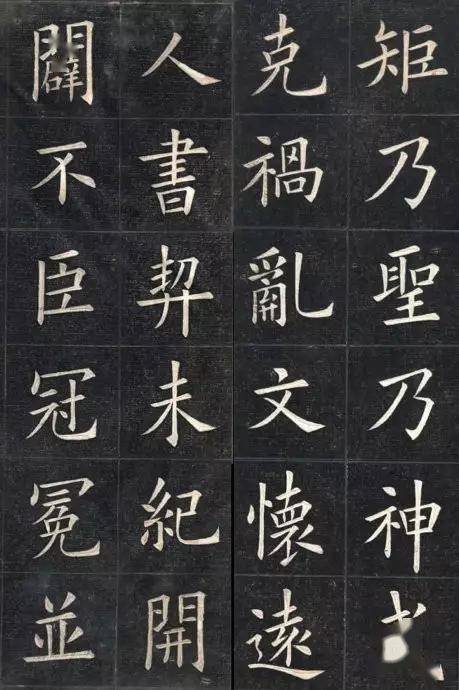 矩乃聖乃神
克禍亂文懷遠
人書契未紀開
闢不臣冠冕並